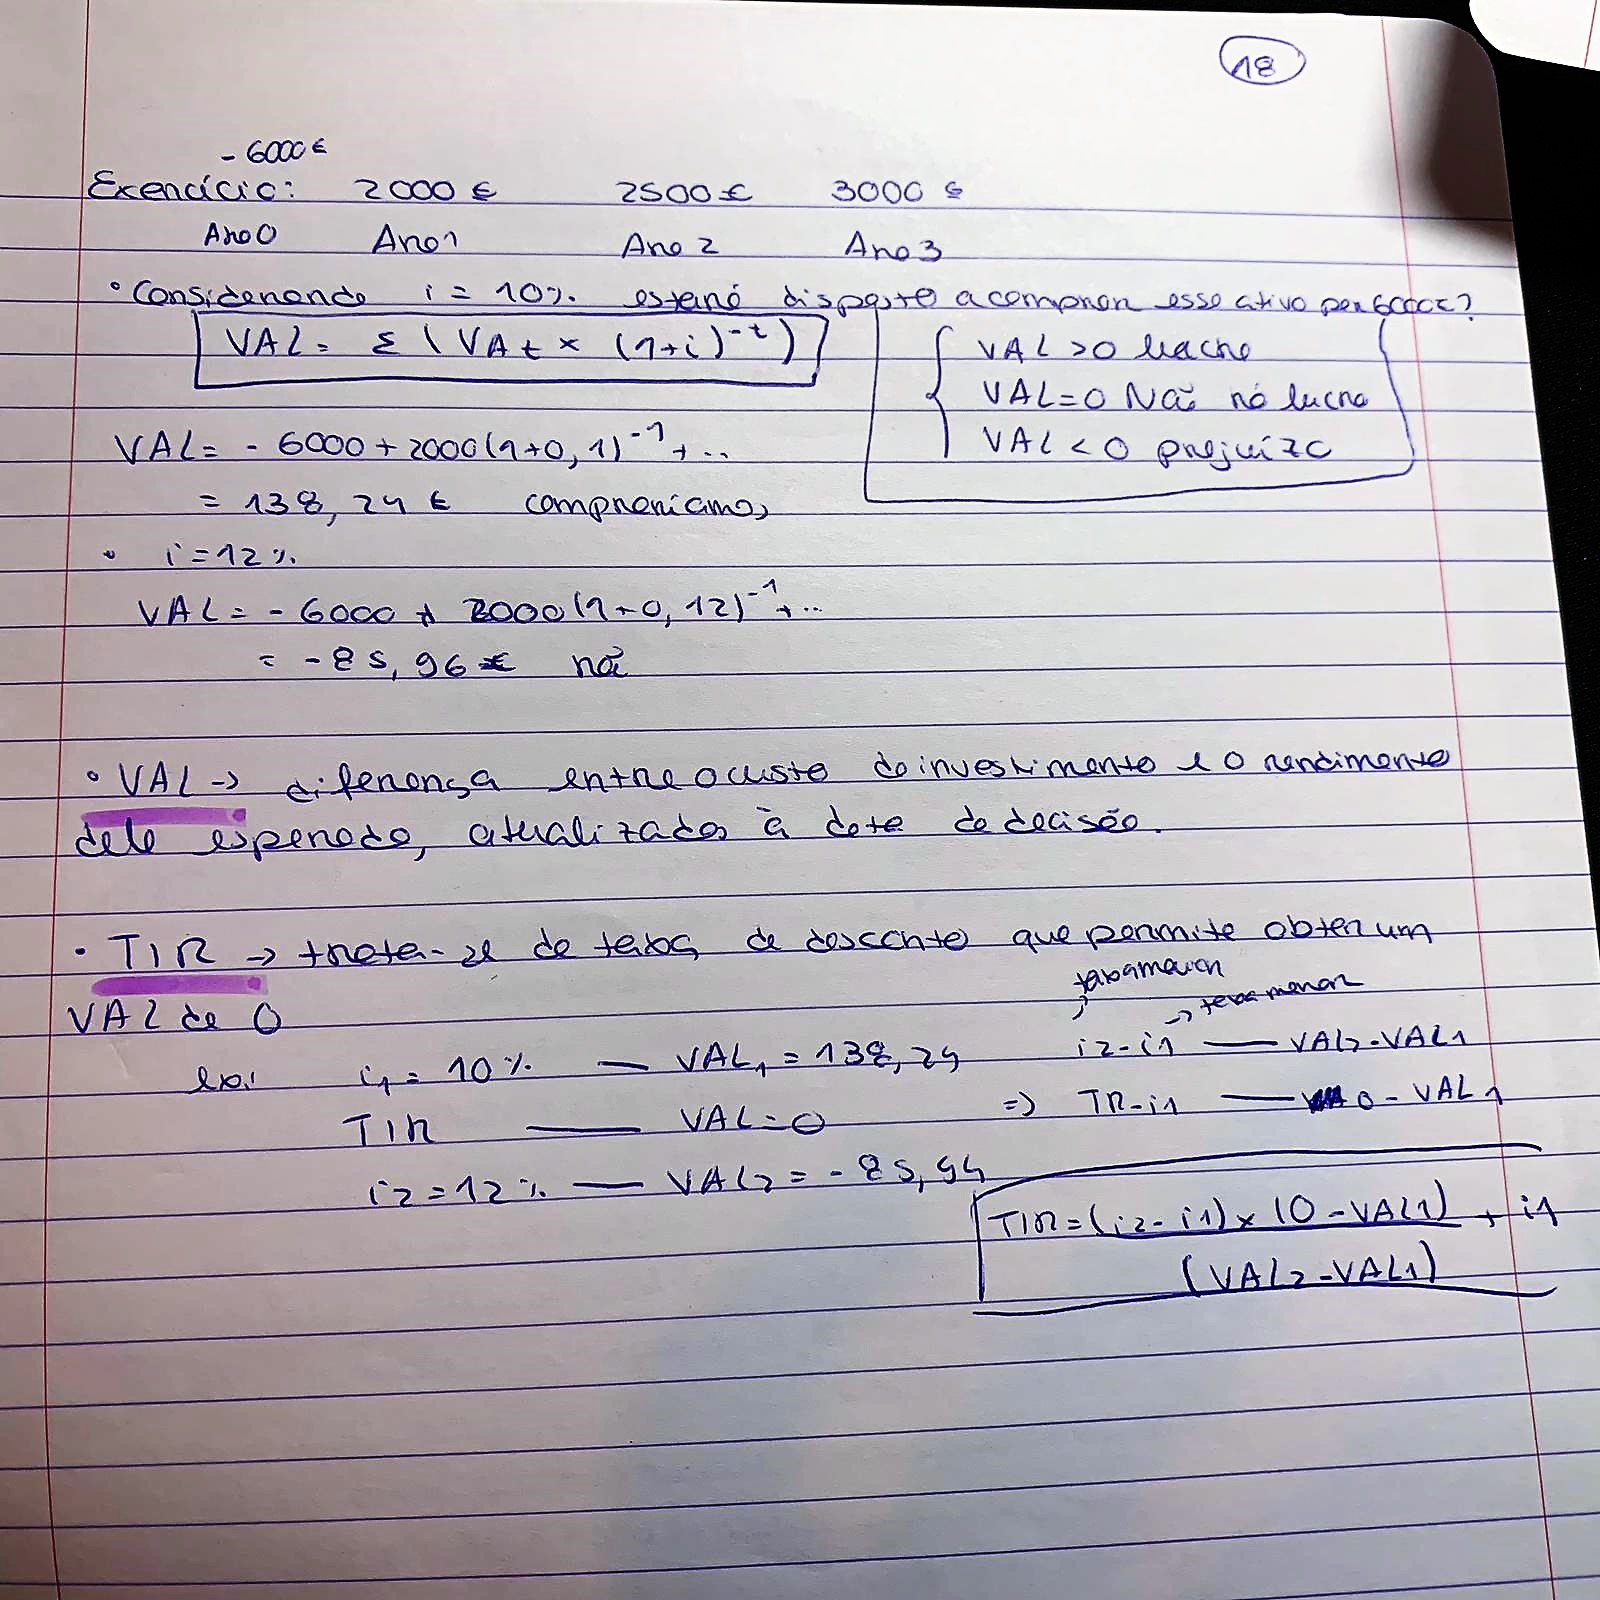 18
- 6000 €
Exercício: 2000 € 2500 € 3000 €
Ano 0 Ano 1 Ano 2 Ano 3
• Considerando i = 10% estaria disposto a comprar esse ativo por 6000€?
VAL = Σ (VAt × (1+i)^-t)
VAL > 0 lucro
VAL = 0 Não há lucro
VAL < 0 prejuízo
VAL = - 6000 + 2000(1+0,1)^-1 + ..
= 138,24 € compraríamos
• i = 12%
VAL = - 6000 + 2000(1+0,12)^-1 + ..
= -85,96 € não
• VAL → diferença entre o custo do investimento e o rendimento
dele esperado, atualizados à data da decisão.
• TIR → trata-se da taxa de desconto que permite obter um
VAL de 0
taxa maior
→ taxa menor
ex: i1 = 10% — VAL1 = 138,24 i2 - i1 — VAL2 - VAL1
TIR — VAL = 0 => TIR - i1 — 0 - VAL1
i2 = 12% — VAL2 = - 85,94
TIR = (i2 - i1) × (0 - VAL1) + i1
(VAL2 - VAL1)